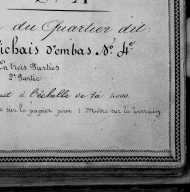 du Quartier dit
ichais d'embas. N.º 4º
En trois Parties
2º Partie
à l'échelle de 1 à 1000.
sur le papier pour 1 Mètre sur le terrain